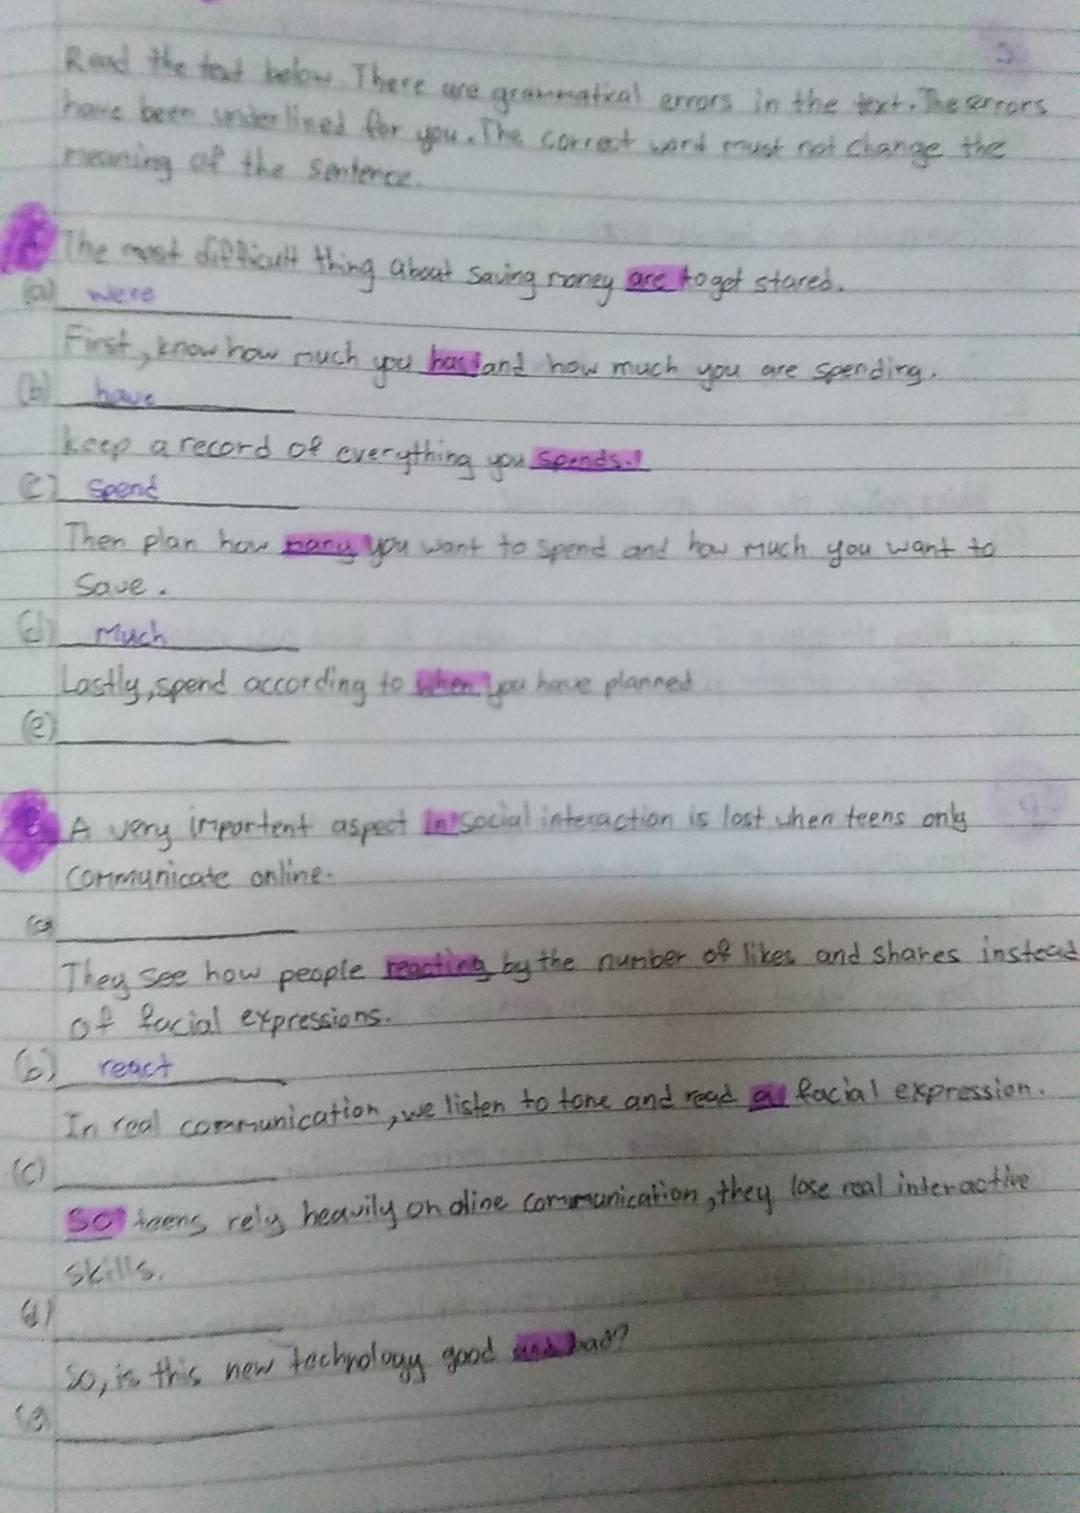 Read the text below. There are grammatical errors in the text. The errors
have been underlined for you. The correct word must not change the
meaning of the sentence.
The most difficult thing about saving money are to get stared.
(a) were
First, know how much you has and how much you are spending.
(b) have
Keep a record of everything you spends.
(c) spend
Then plan how many you want to spend and how much you want to
save.
(d) Much
Lastly, spend according to when you have planned
(e)
A very importent aspect in social interaction is lost when teens only
communicate online.
(a)
They see how people reacting by the number of likes and shares instead
of facial expressions.
(b) react
In real communication, we listen to tone and read a facial expression.
(c)
So teens rely heavily on oline communication, they lose real interactive
skills.
(d)
So, is this new technology good and bad?
(e)